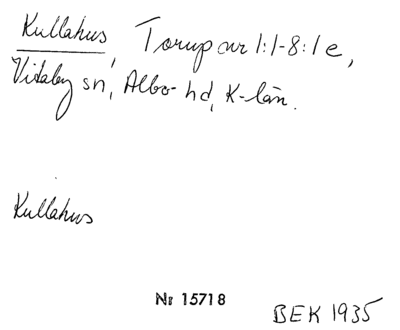 Kullahus, Torup nr 1:1-8:1 e,
Vitaby sn, Albo- hd, K-län.
Kullahus
Nr 15718
BEK 1935